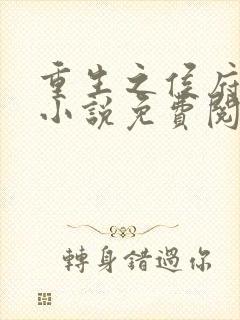 重生之侯府
小說免費閱
轉身錯過你